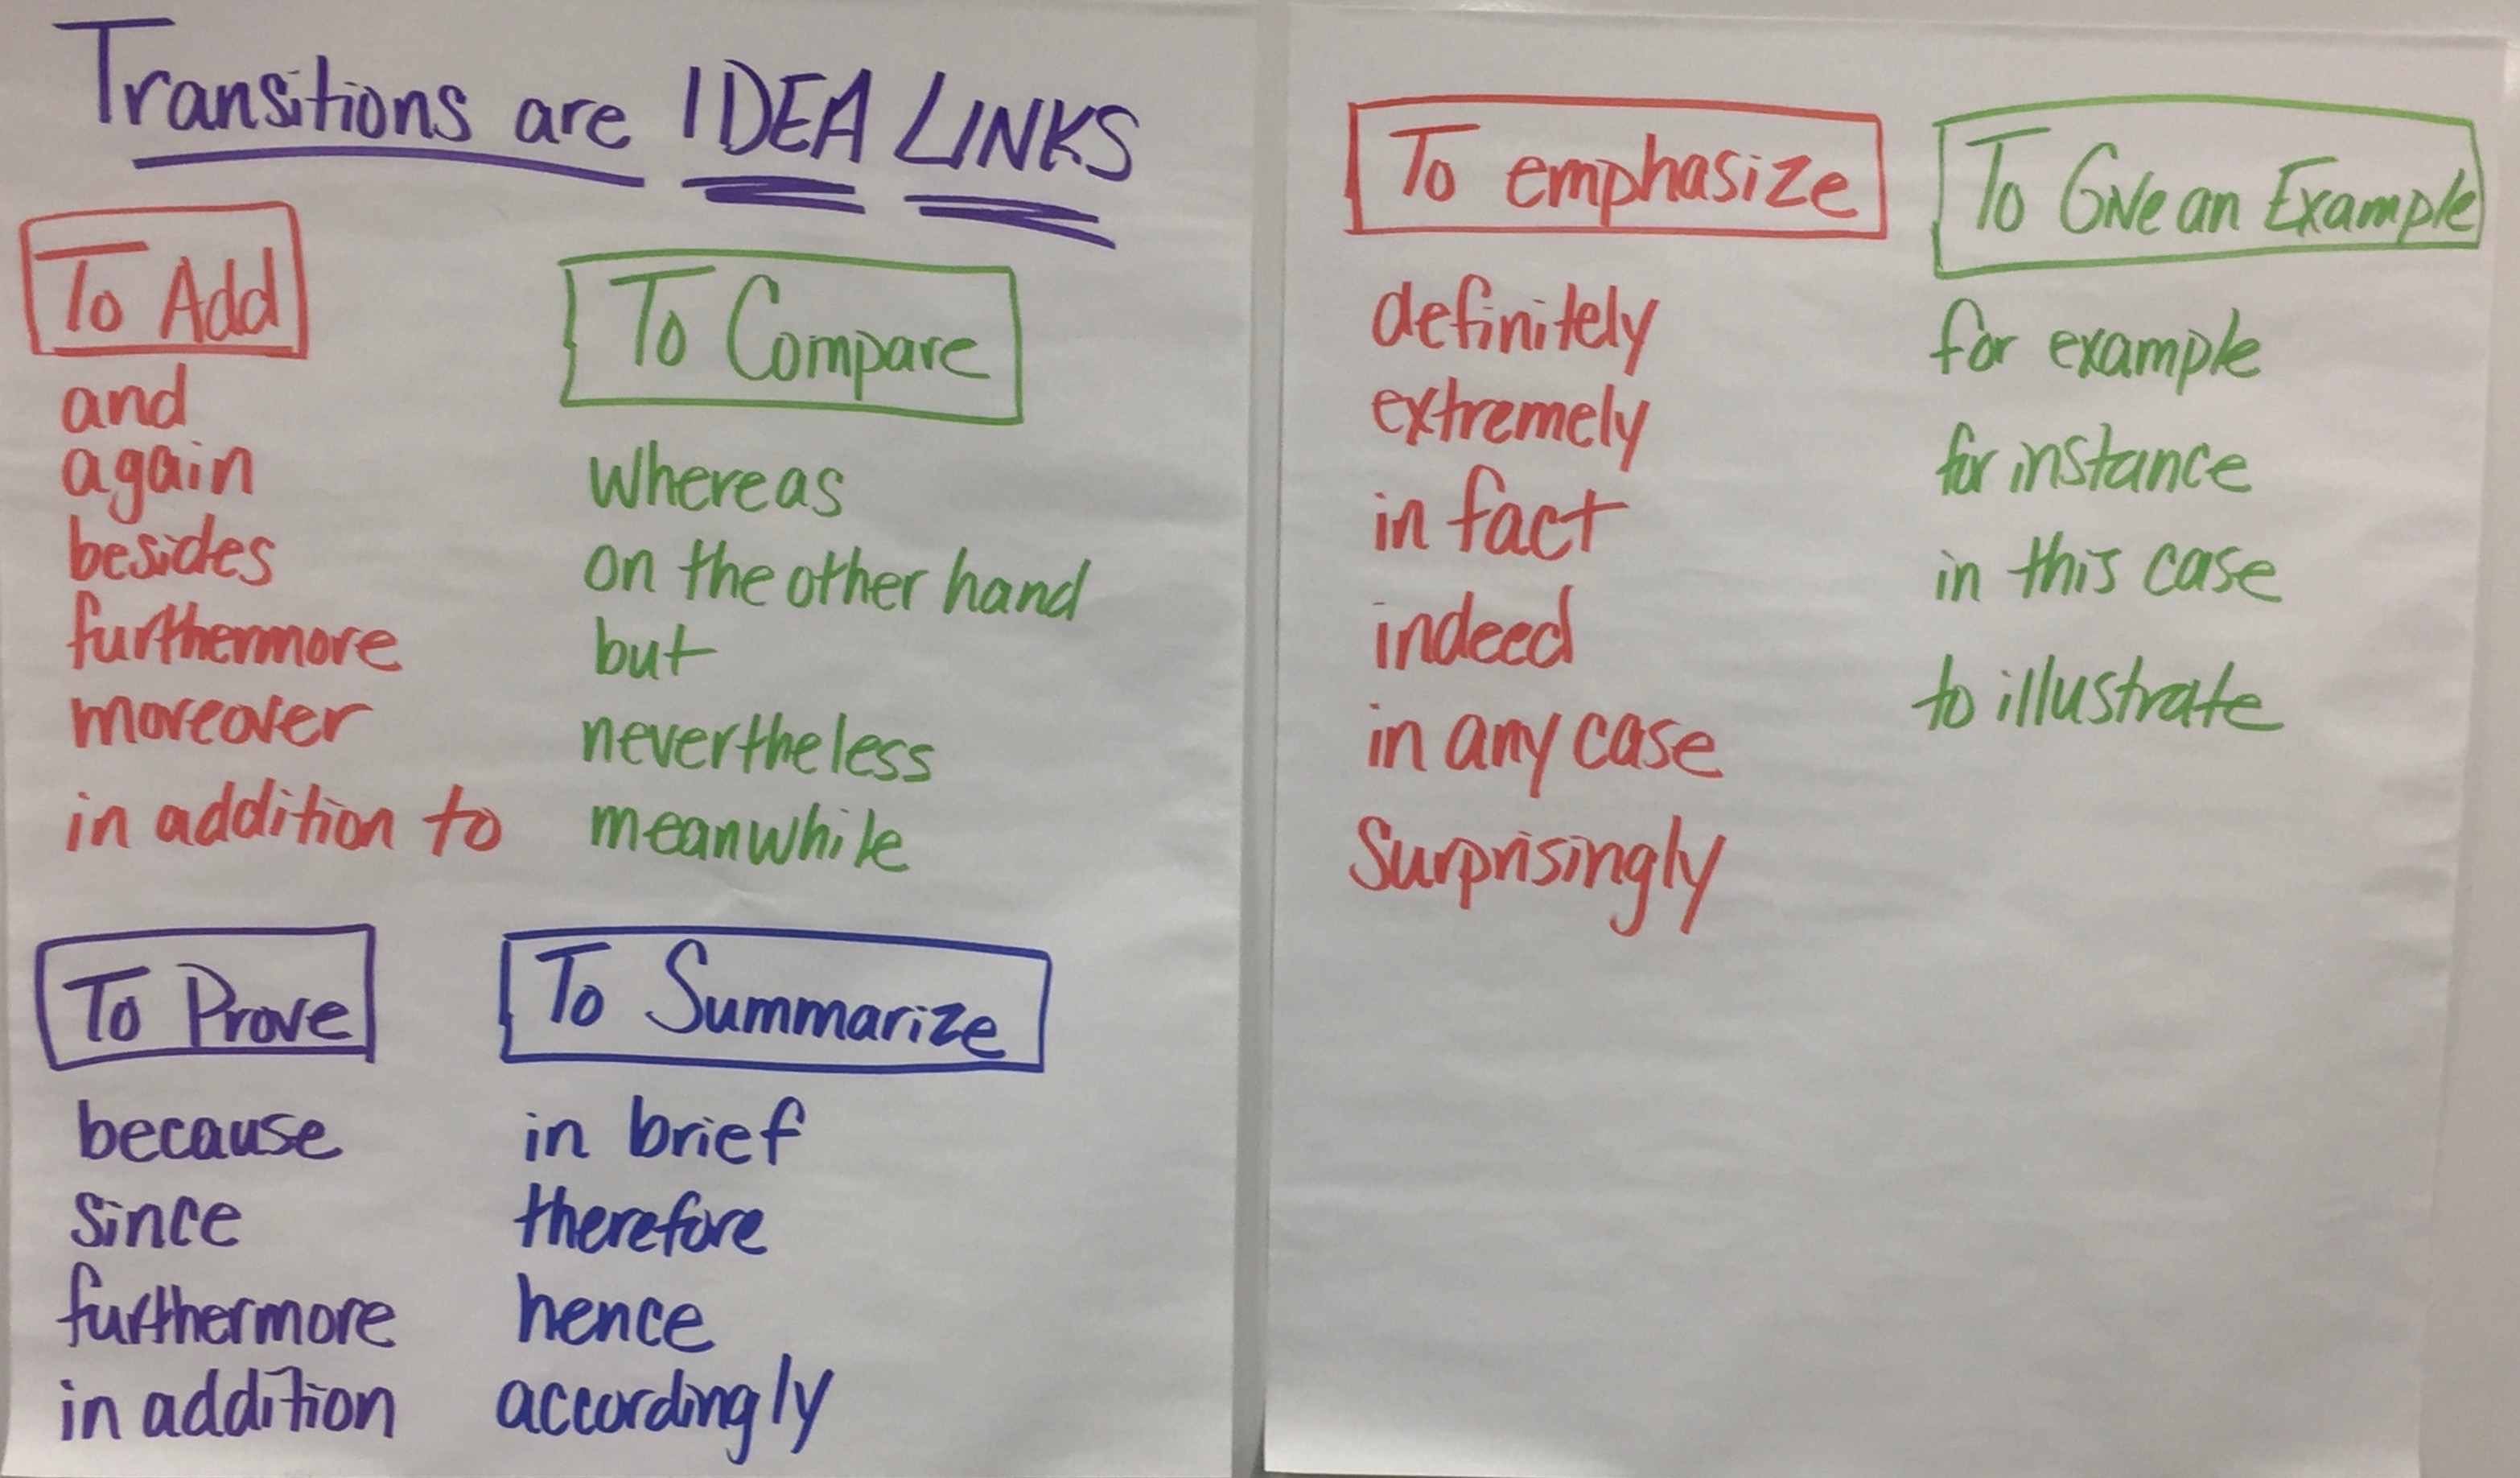 Transitions are IDEA LINKS
To Add
and
again
besides
furthermore
moreover
in addition to
To Compare
whereas
on the other hand
but
nevertheless
meanwhile
To Prove
because
since
furthermore
in addition
To Summarize
in brief
therefore
hence
accordingly
To emphasize
definitely
extremely
in fact
indeed
in any case
Surprisingly
To Give an Example
for example
for instance
in this case
to illustrate